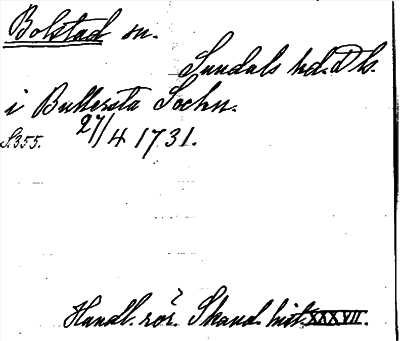 Bolstad sn.
Sundals hd. Dls.
i Bullersta Sochn.
S.355. 27/4 1731.
Handl. rör. Skand. hist. XXXVII.